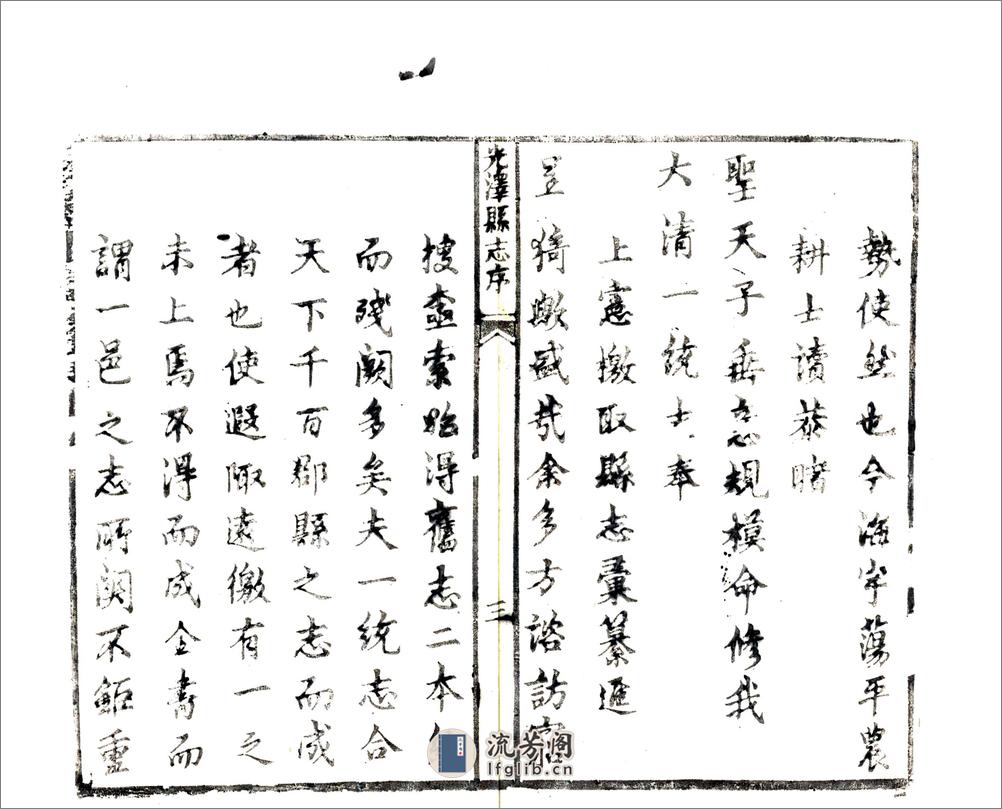 勢使然也今海宇蕩平農
耕士讀恭睹
聖天子垂志規模命修我
大清一統志奉
上憲檄取縣志彙纂遞
呈猗歟盛哉余多方諮訪
光澤縣志序
三
搜壺索始得舊志二本
而殘闕多矣夫一統志合
天下千百郡縣之志而成
者也使遐陬遠徼有一之
未上焉不得而成全書而
謂一邑之志所關不鉅重
流芳阁
lfglib.cn